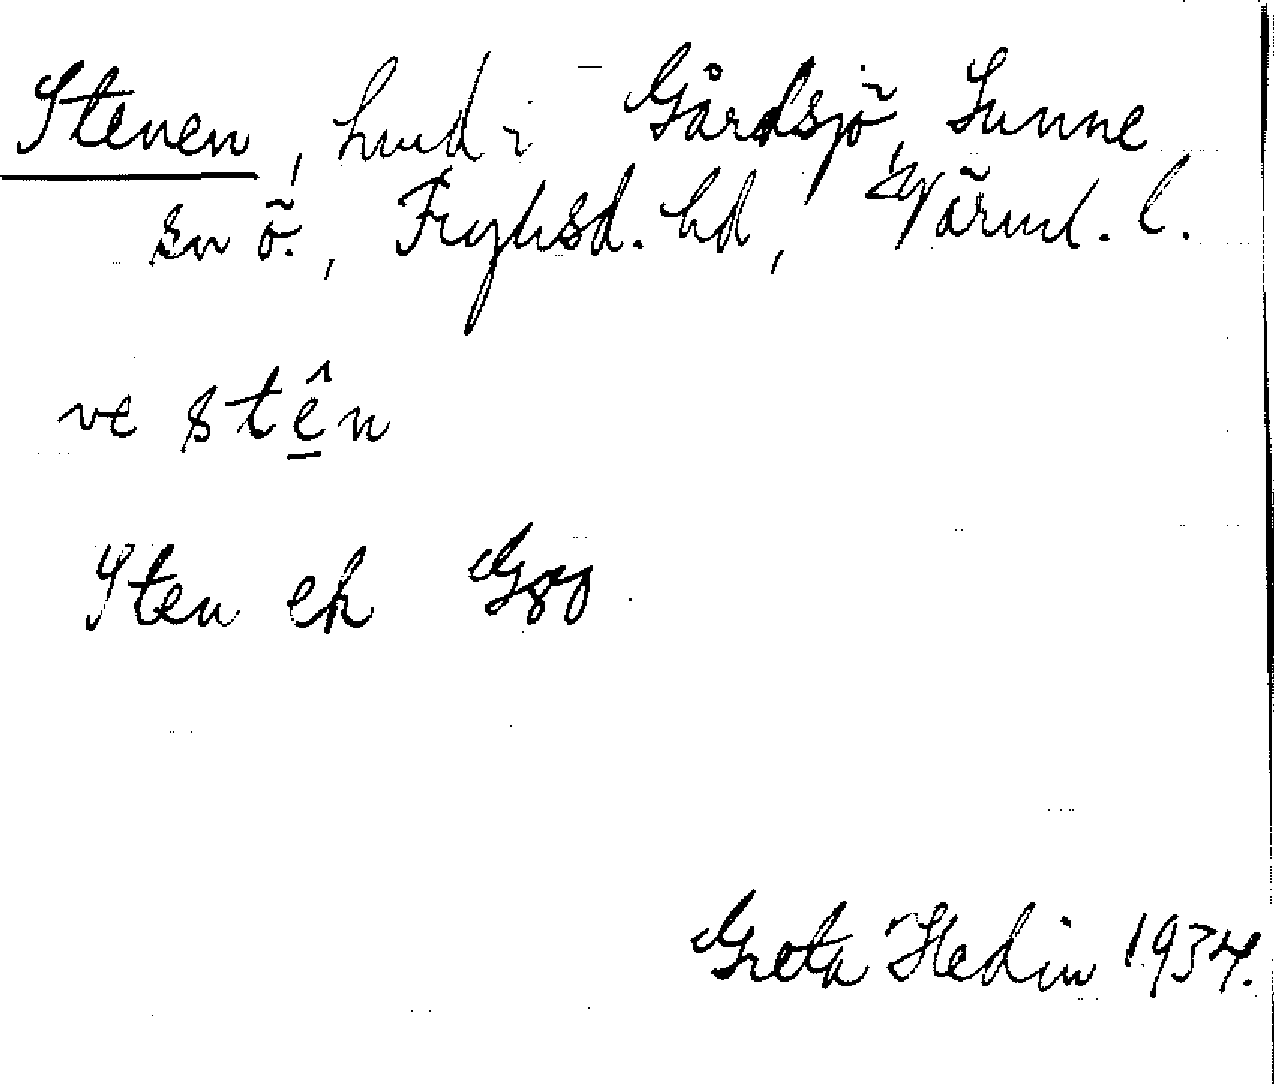 Stenen, hmd i Gårdsjö, Sunne
sn ö., Fryksd. hd, Värml. l.
ve stên
Sten ek Gsö
Greta Hedin 1934.